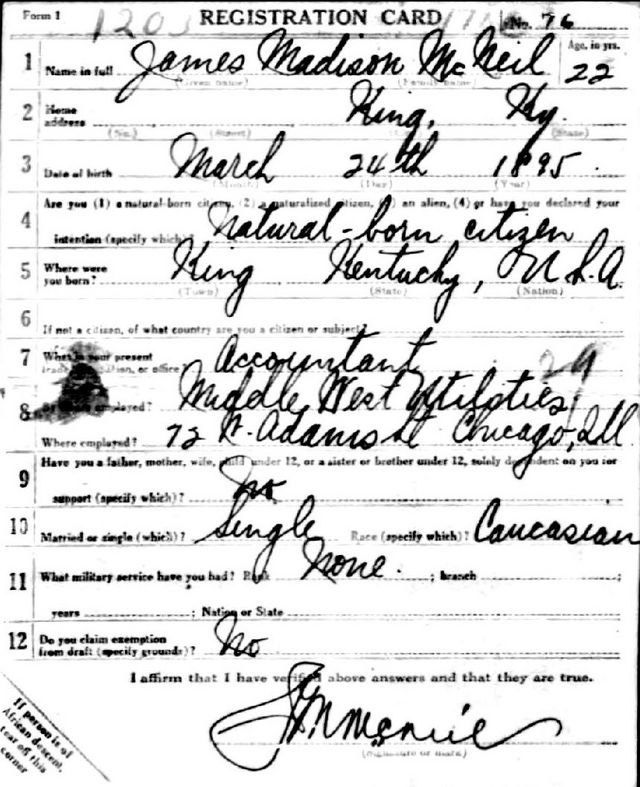 Form 1 1203 REGISTRATION CARD No. 76
1 Name in full James Madison McNeil Age, in yrs. 22
(Given name) (Family name)
2 Home address King, Ky.
(No.) (Street) (State)
3 Date of birth March 24th 1895
(Month) (Day) (Year)
4 Are you (1) a natural-born citizen, (2) a naturalized citizen, (3) an alien, (4) or have you declared your
intention (specify which)? Natural-born citizen
5 Where were you born? King Kentucky, U.S.A.
(Town) (State) (Nation)
6 If not a citizen, of what country are you a citizen or subject?
7 What is your present trade, occupation, or office? Accountant 29
8 By whom employed? Middle West Utilities
Where employed? 72 W. Adams St Chicago, Ill.
9 Have you a father, mother, wife, child under 12, or a sister or brother under 12, solely dependent on you for
support (specify which)? No
10 Married or single (which)? Single Race (specify which)? Caucasian
11 What military service have you had? Rank None. ; branch ;
years ; Nation or State
12 Do you claim exemption from draft (specify grounds)? No
I affirm that I have verified above answers and that they are true.
(Signature or mark)
If person is of
African descent,
tear off this
corner